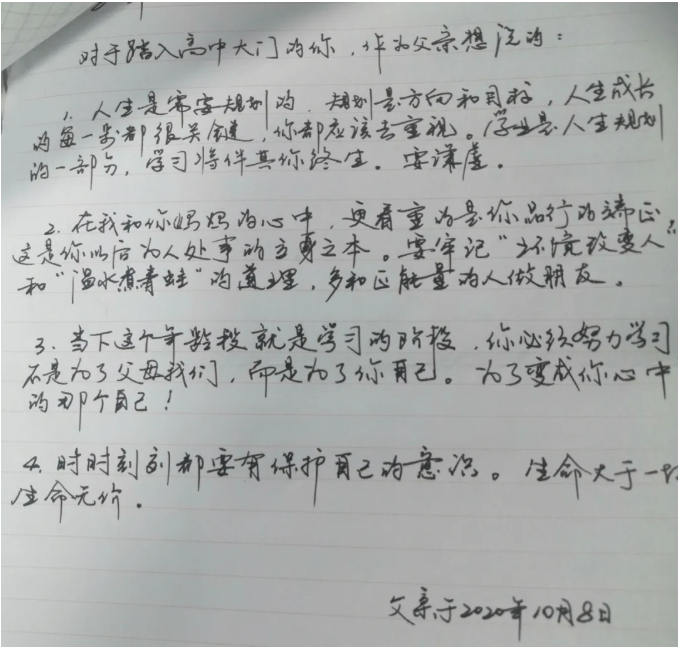 对于踏入高中大门的你，作为父亲想说的：
1. 人生是需要规划的，规划是方向和目标，人生成长
的每一步都很关键，你都应该去重视。学业是人生规划
的一部分，学习将伴其你终生。要谦虚。
2. 在我和你妈妈的心中，更看重的是你品行的端正
这是你以后为人处事的立身之本。要牢记“环境改变人”
和“温水煮青蛙”的道理，多和正能量的人做朋友。
3. 当下这个年龄段就是学习的阶段，你必须努力学习
不是为了父母我们，而是为了你自己。为了变成你心中
的那个自己！
4. 时时刻刻都要有保护自己的意识。生命大于一切
生命无价。
父亲于2020年10月8日